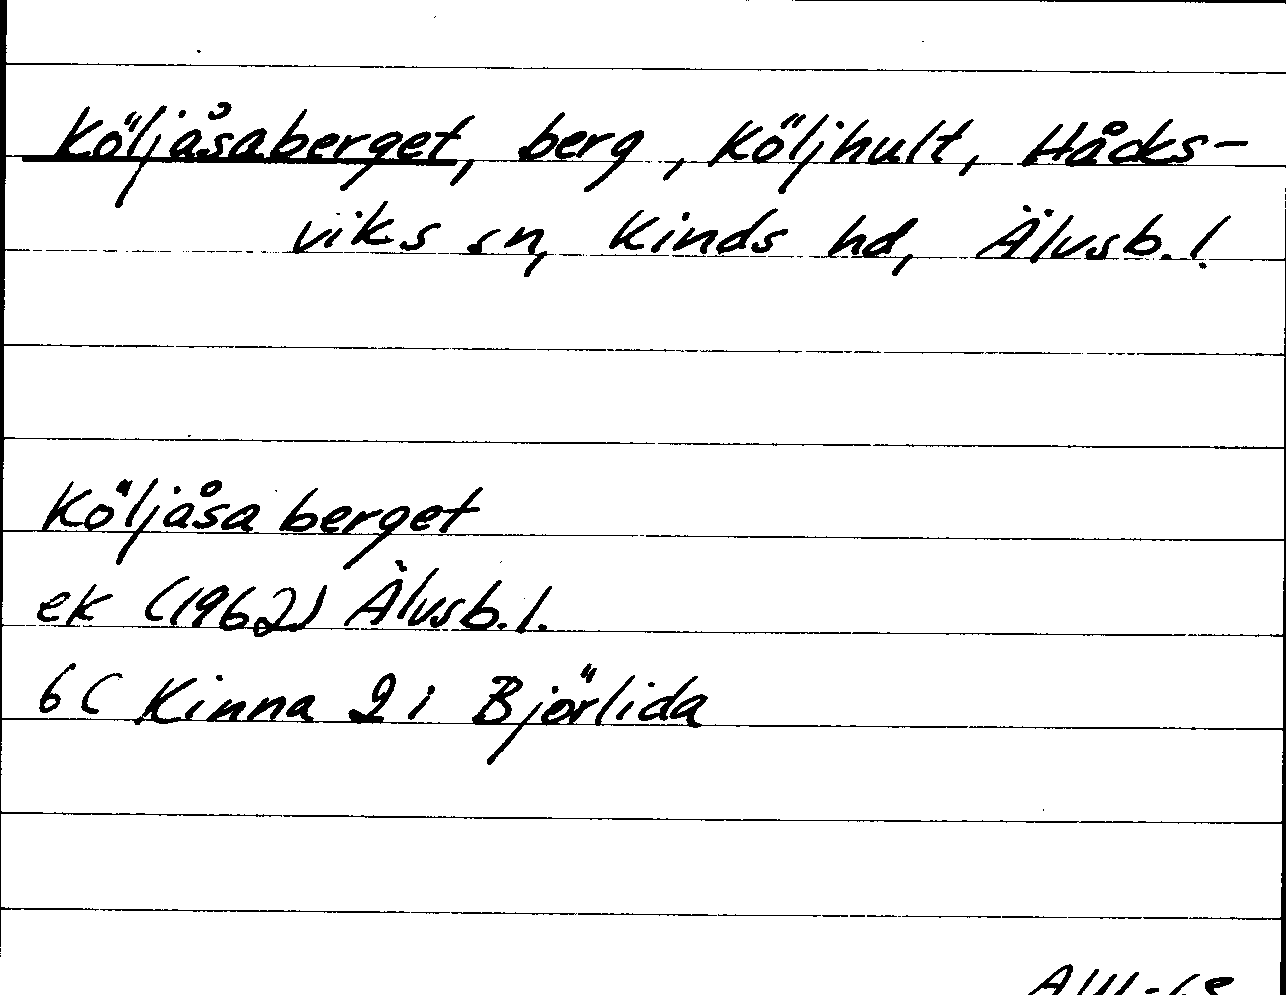 Köljåsaberget, berg, Köljhult, Håcks-
viks sn, Kinds hd, Älvsb. l.
Köljåsaberget
ek (1962) Älvsb. l.
6C Kinna 2i Björlida